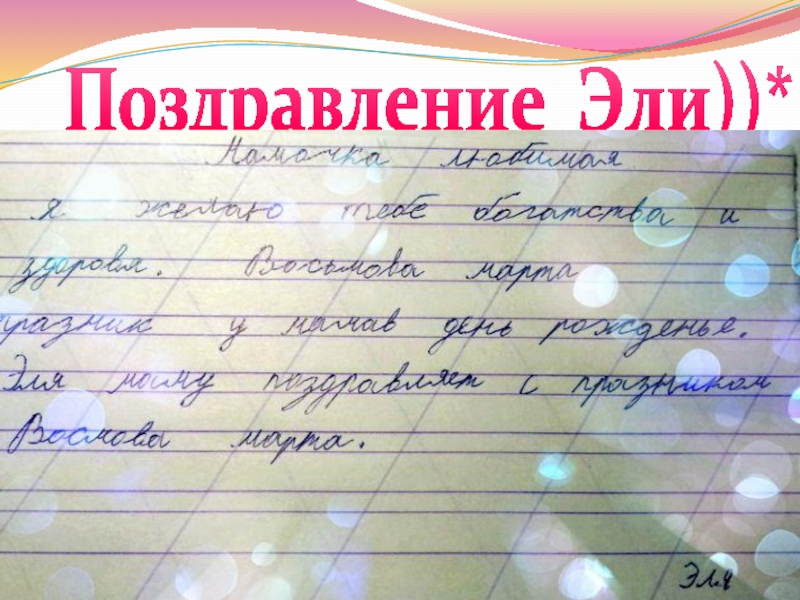 Поздравление Эли))*
Мамочка любимая
я желаю тебе богатства и
здоровя. Восьмова марта
празник у мамав день рожденье.
Эля маму поздравляет с празником
Восмова марта.
Эля